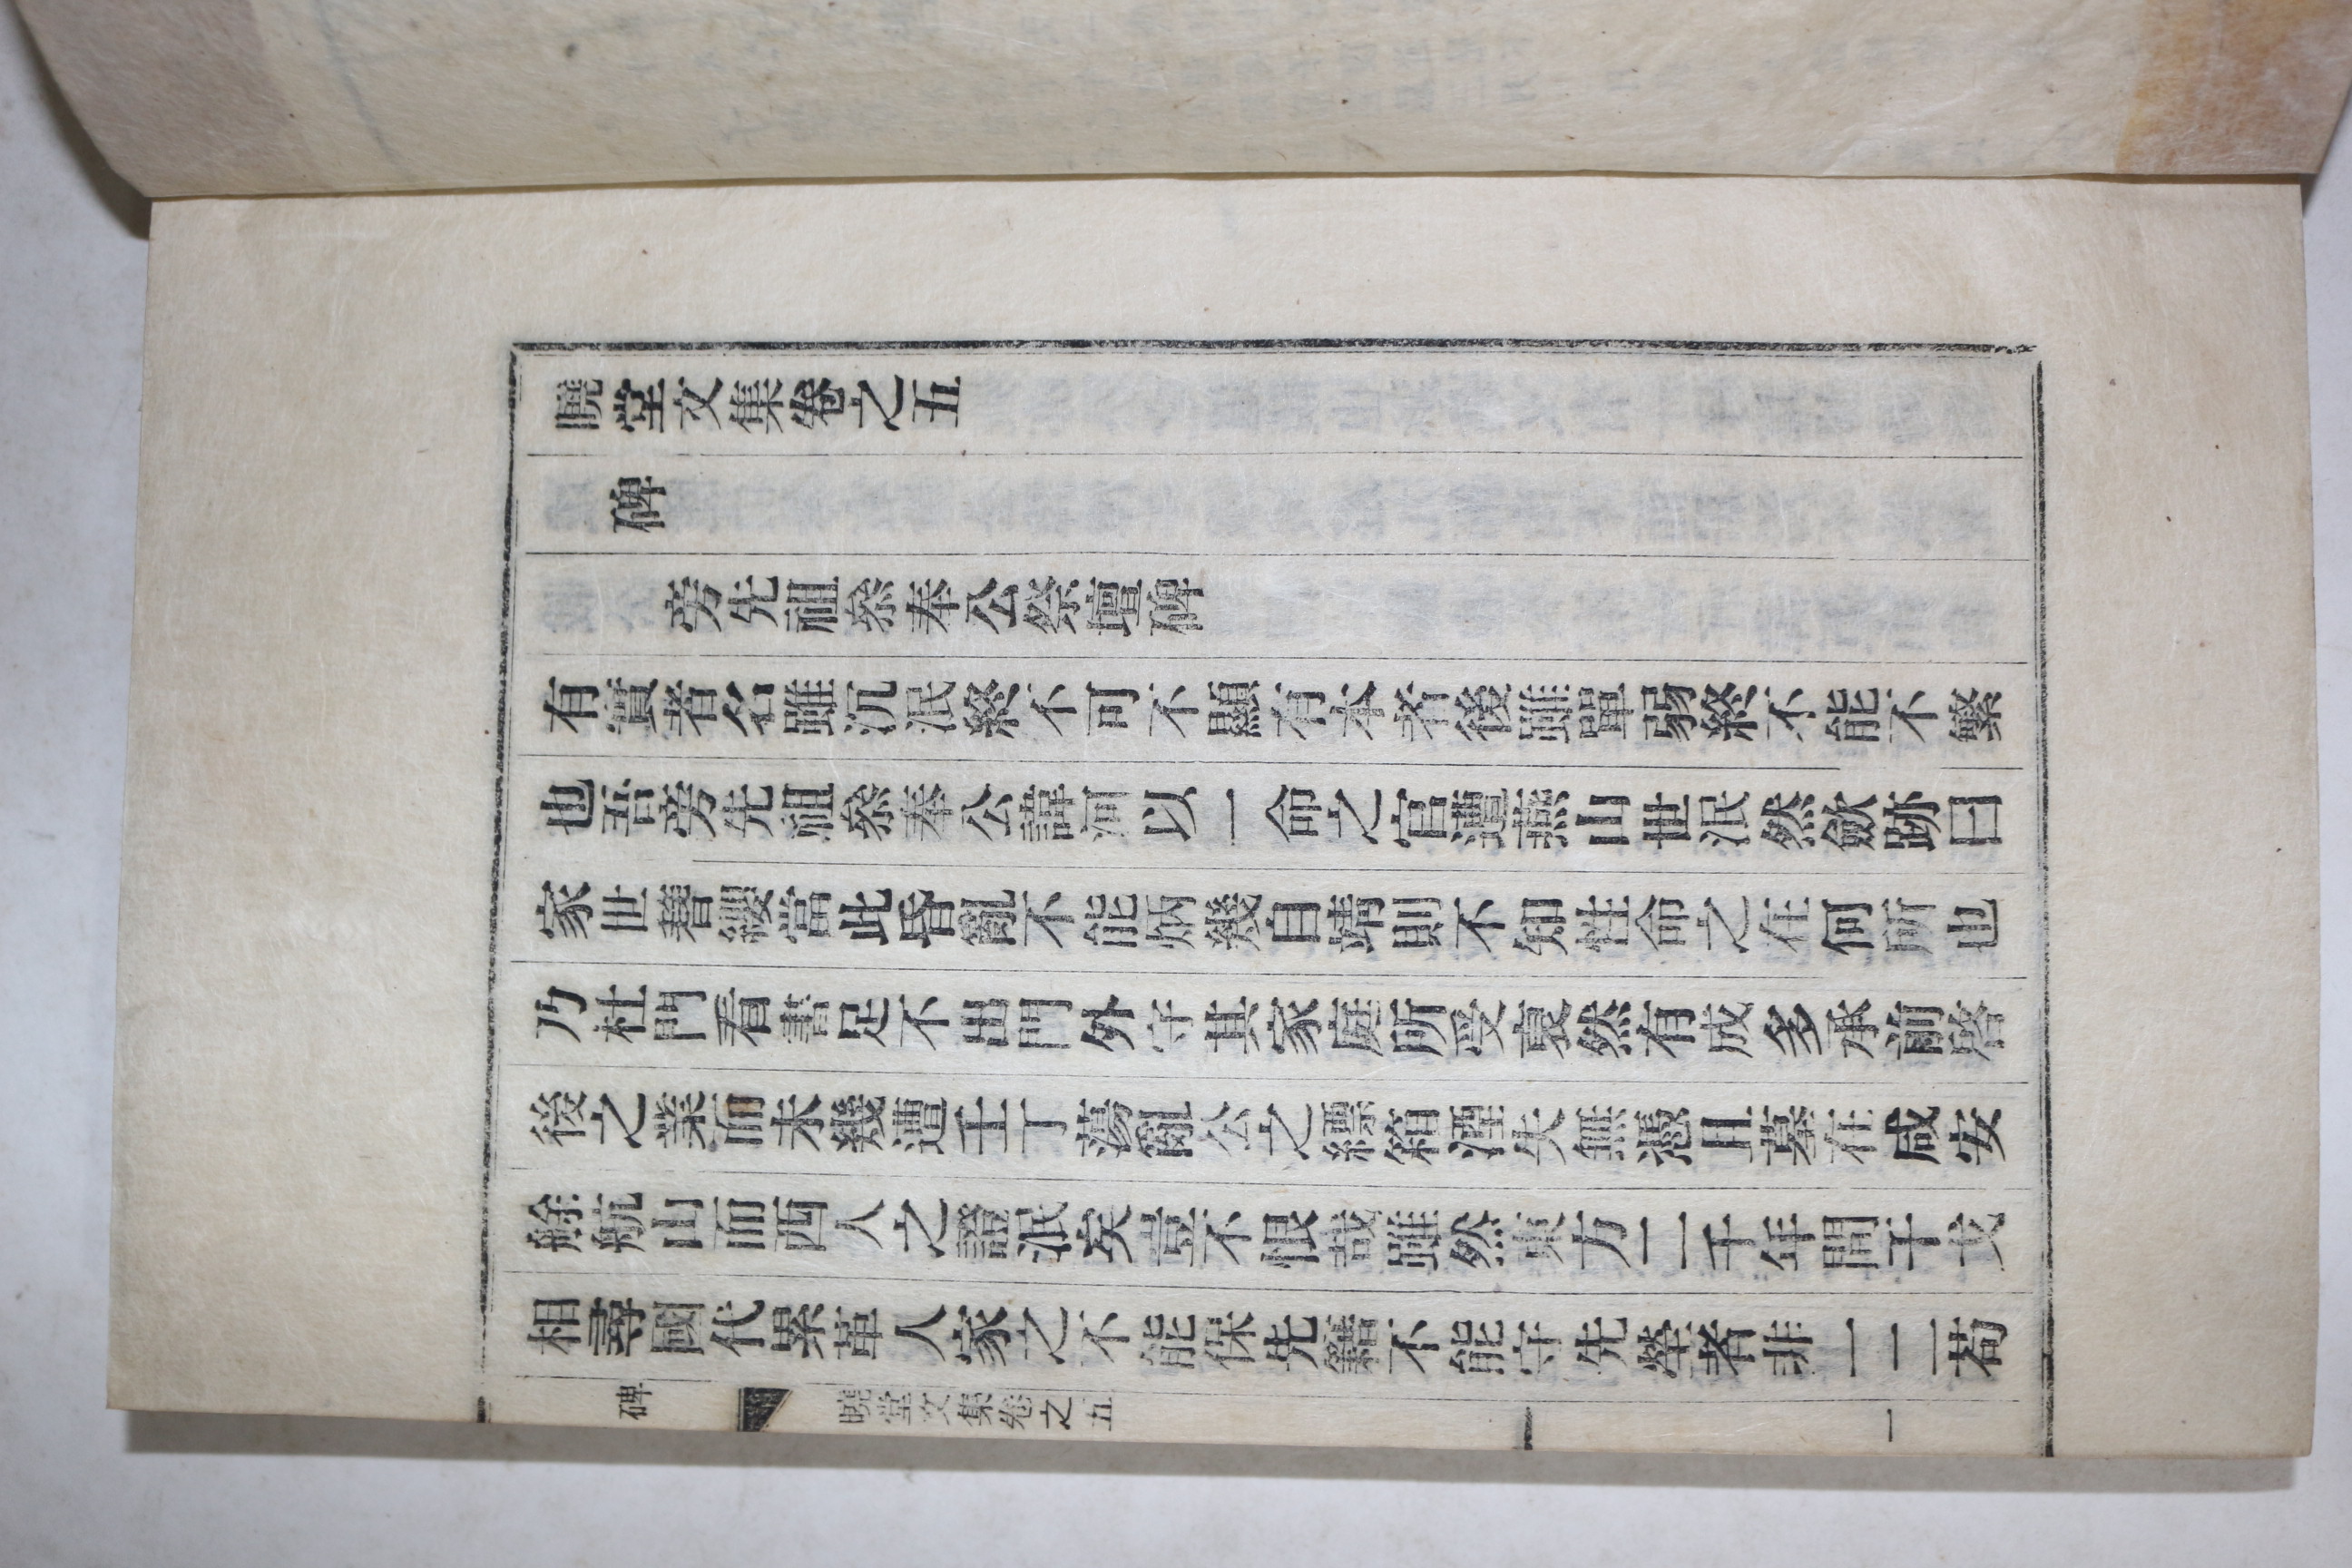 曉堂文集卷之五
碑
旁先祖叅奉公祭壇碑
有實者名雖沉泯終不可不顯有本者後雖單弱終不能不繁
也吾旁先祖叅奉公諱河以一命之官遭燕山世泯然斂跡曰
家世簪纓當此昏亂不能炳幾自靖則不知性命之在何所也
乃杜門看書足不出門外守其家庭所受裒然有成多承前啓
後之業而未幾遭壬丁蕩亂公之縹箱湮失無憑且墓在咸安
艅航山而西人之證泯矣豈不恨哉雖然東方二千年間干戈
相尋國代累革人家之不能保先籍不能守先塋者非一二苟
碑
曉堂文集卷之五
一